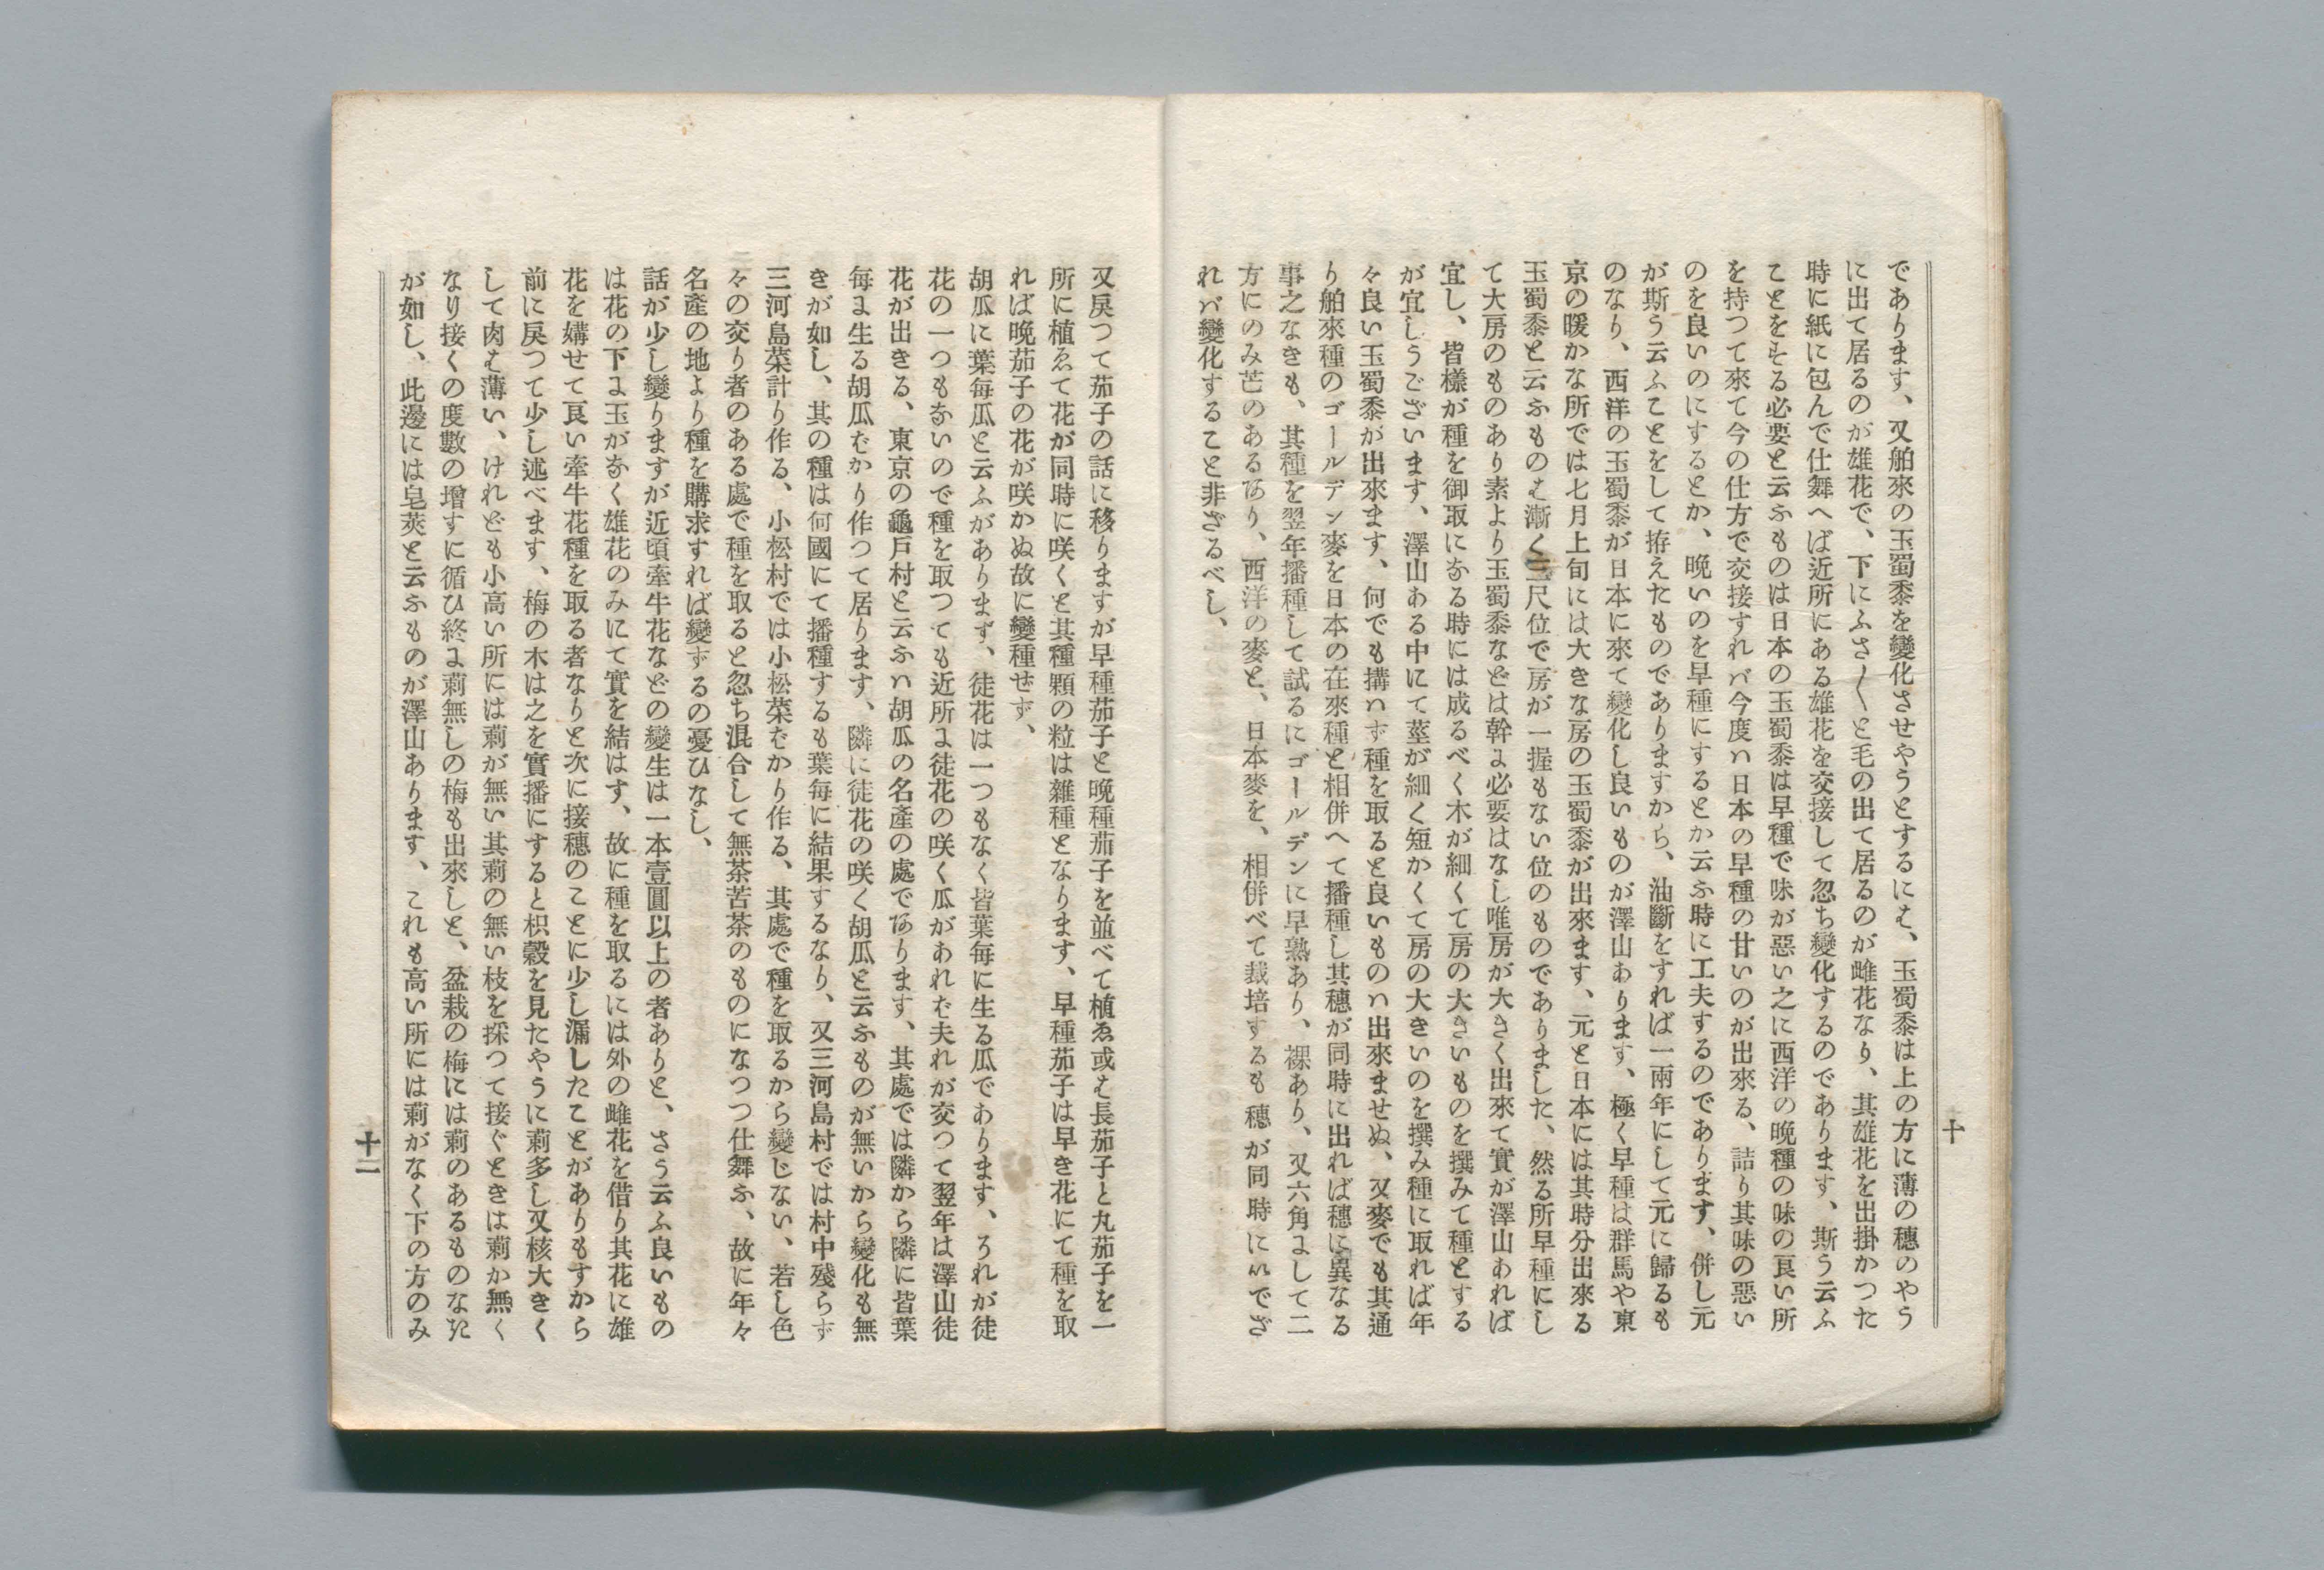 十
であります、又舶來の玉蜀黍を變化させやうとするには、玉蜀黍は上の方に薄の穗のやう
に出て居るのが雄花で、下にふさ〱と毛の出て居るのが雌花なり、其雄花を出掛かつた
時に紙に包んで仕舞へば近所にある雄花を交接して忽ち變化するのであります、斯う云ふ
ことをする必要と云ふものは日本の玉蜀黍は早種で味が惡い之に西洋の晩種の味の良い所
を持つて來て今の仕方で交接すれバ今度ハ日本の早種の甘いのが出來る、詰り其味の惡い
のを良いのにするとか、晩いのを早種にするとか云ふ時に工夫するのであります、併し元
が斯う云ふことをして拵えたものでありますから、油斷をすれば一兩年にして元に歸るも
のなり、西洋の玉蜀黍が日本に來て變化し良いものが澤山あります、極く早種は群馬や東
京の暖かな所では七月上旬には大きな房の玉蜀黍が出來ます、元と日本には其時分出來る
玉蜀黍と云ふものは漸く二尺位で房が一握もない位のものでありました、然る所早種にし
て大房のものあり素より玉蜀黍などは幹は必要はなし唯房が大きく出來て實が澤山あれば
宜し、皆樣が種を御取になる時には成るべく木が細くて房の大きいものを撰みて種とする
が宜しうございます、澤山ある中にて莖が細く短かくて房の大きいのを撰み種に取れば年
々良い玉蜀黍が出來ます、何でも搆ハず種を取ると良いものハ出來ませぬ、又麥でも其通
り舶來種のゴールデン麥を日本の在來種と相併へて播種し其穗が同時に出れば穗に異なる
事之なきも、其種を翌年播種して試るにゴールデンに早熟あり、裸あり、又六角にして二
方にのみ芒のあるあり、西洋の麥と、日本麥を、相併べて栽培するも穗が同時にいでざ
れバ變化すること非ざるべし、
又戻つて茄子の話に移りますが早種茄子と晩種茄子を並べて植ゑ或は長茄子と丸茄子を一
所に植ゑて花が同時に咲くと其種顆の粒は雜種となります、早種茄子は早き花にて種を取
れば晩茄子の花が咲かぬ故に變種せず、
胡瓜に葉毎瓜と云ふがありまず、徒花は一つもなく皆葉毎に生る瓜であります、それが徒
花の一つもないので種を取つても近所に徒花の咲く瓜があれば夫れが交つて翌年は澤山徒
花が出きる、東京の龜戸村と云ふハ胡瓜の名產の處であります、其處では隣から隣に皆葉
毎に生る胡瓜ばかり作つて居ります、隣に徒花の咲く胡瓜と云ふものが無いから變化も無
きが如し、其の種は何國にて播種するも葉毎に結果するなり、又三河島村では村中殘らず
三河島菜計り作る、小松村では小松菜ばかり作る、其處で種を取るから變じない、若し色
々の交り者のある處で種を取ると忽ち混合して無茶苦茶のものになつつ仕舞ふ、故に年々
名產の地より種を購求すれば變ずるの憂ひなし、
話が少し變りますが近頃牽牛花などの變生は一本壹圓以上の者ありと、さう云ふ良いもの
は花の下に玉がなく雄花のみにて實を結はす、故に種を取るには外の雌花を借り其花に雄
花を媾せて良い牽牛花種を取る者なりと次に接穗のことに少し漏したことがありもすから
前に戻つて少し述べます、梅の木は之を實播にすると枳殼を見たやうに莿多し又核大きく
して肉は薄い、けれども小高い所には莿が無い其莿の無い枝を採つて接ぐときは莿か無く
なり接くの度數の增すに循ひ終に莿無しの梅も出來しと、盆栽の梅には莿のあるものなた
が如し、此邊には皂莢と云ふものが澤山あります、これも高い所には莿がなく下の方のみ
十一